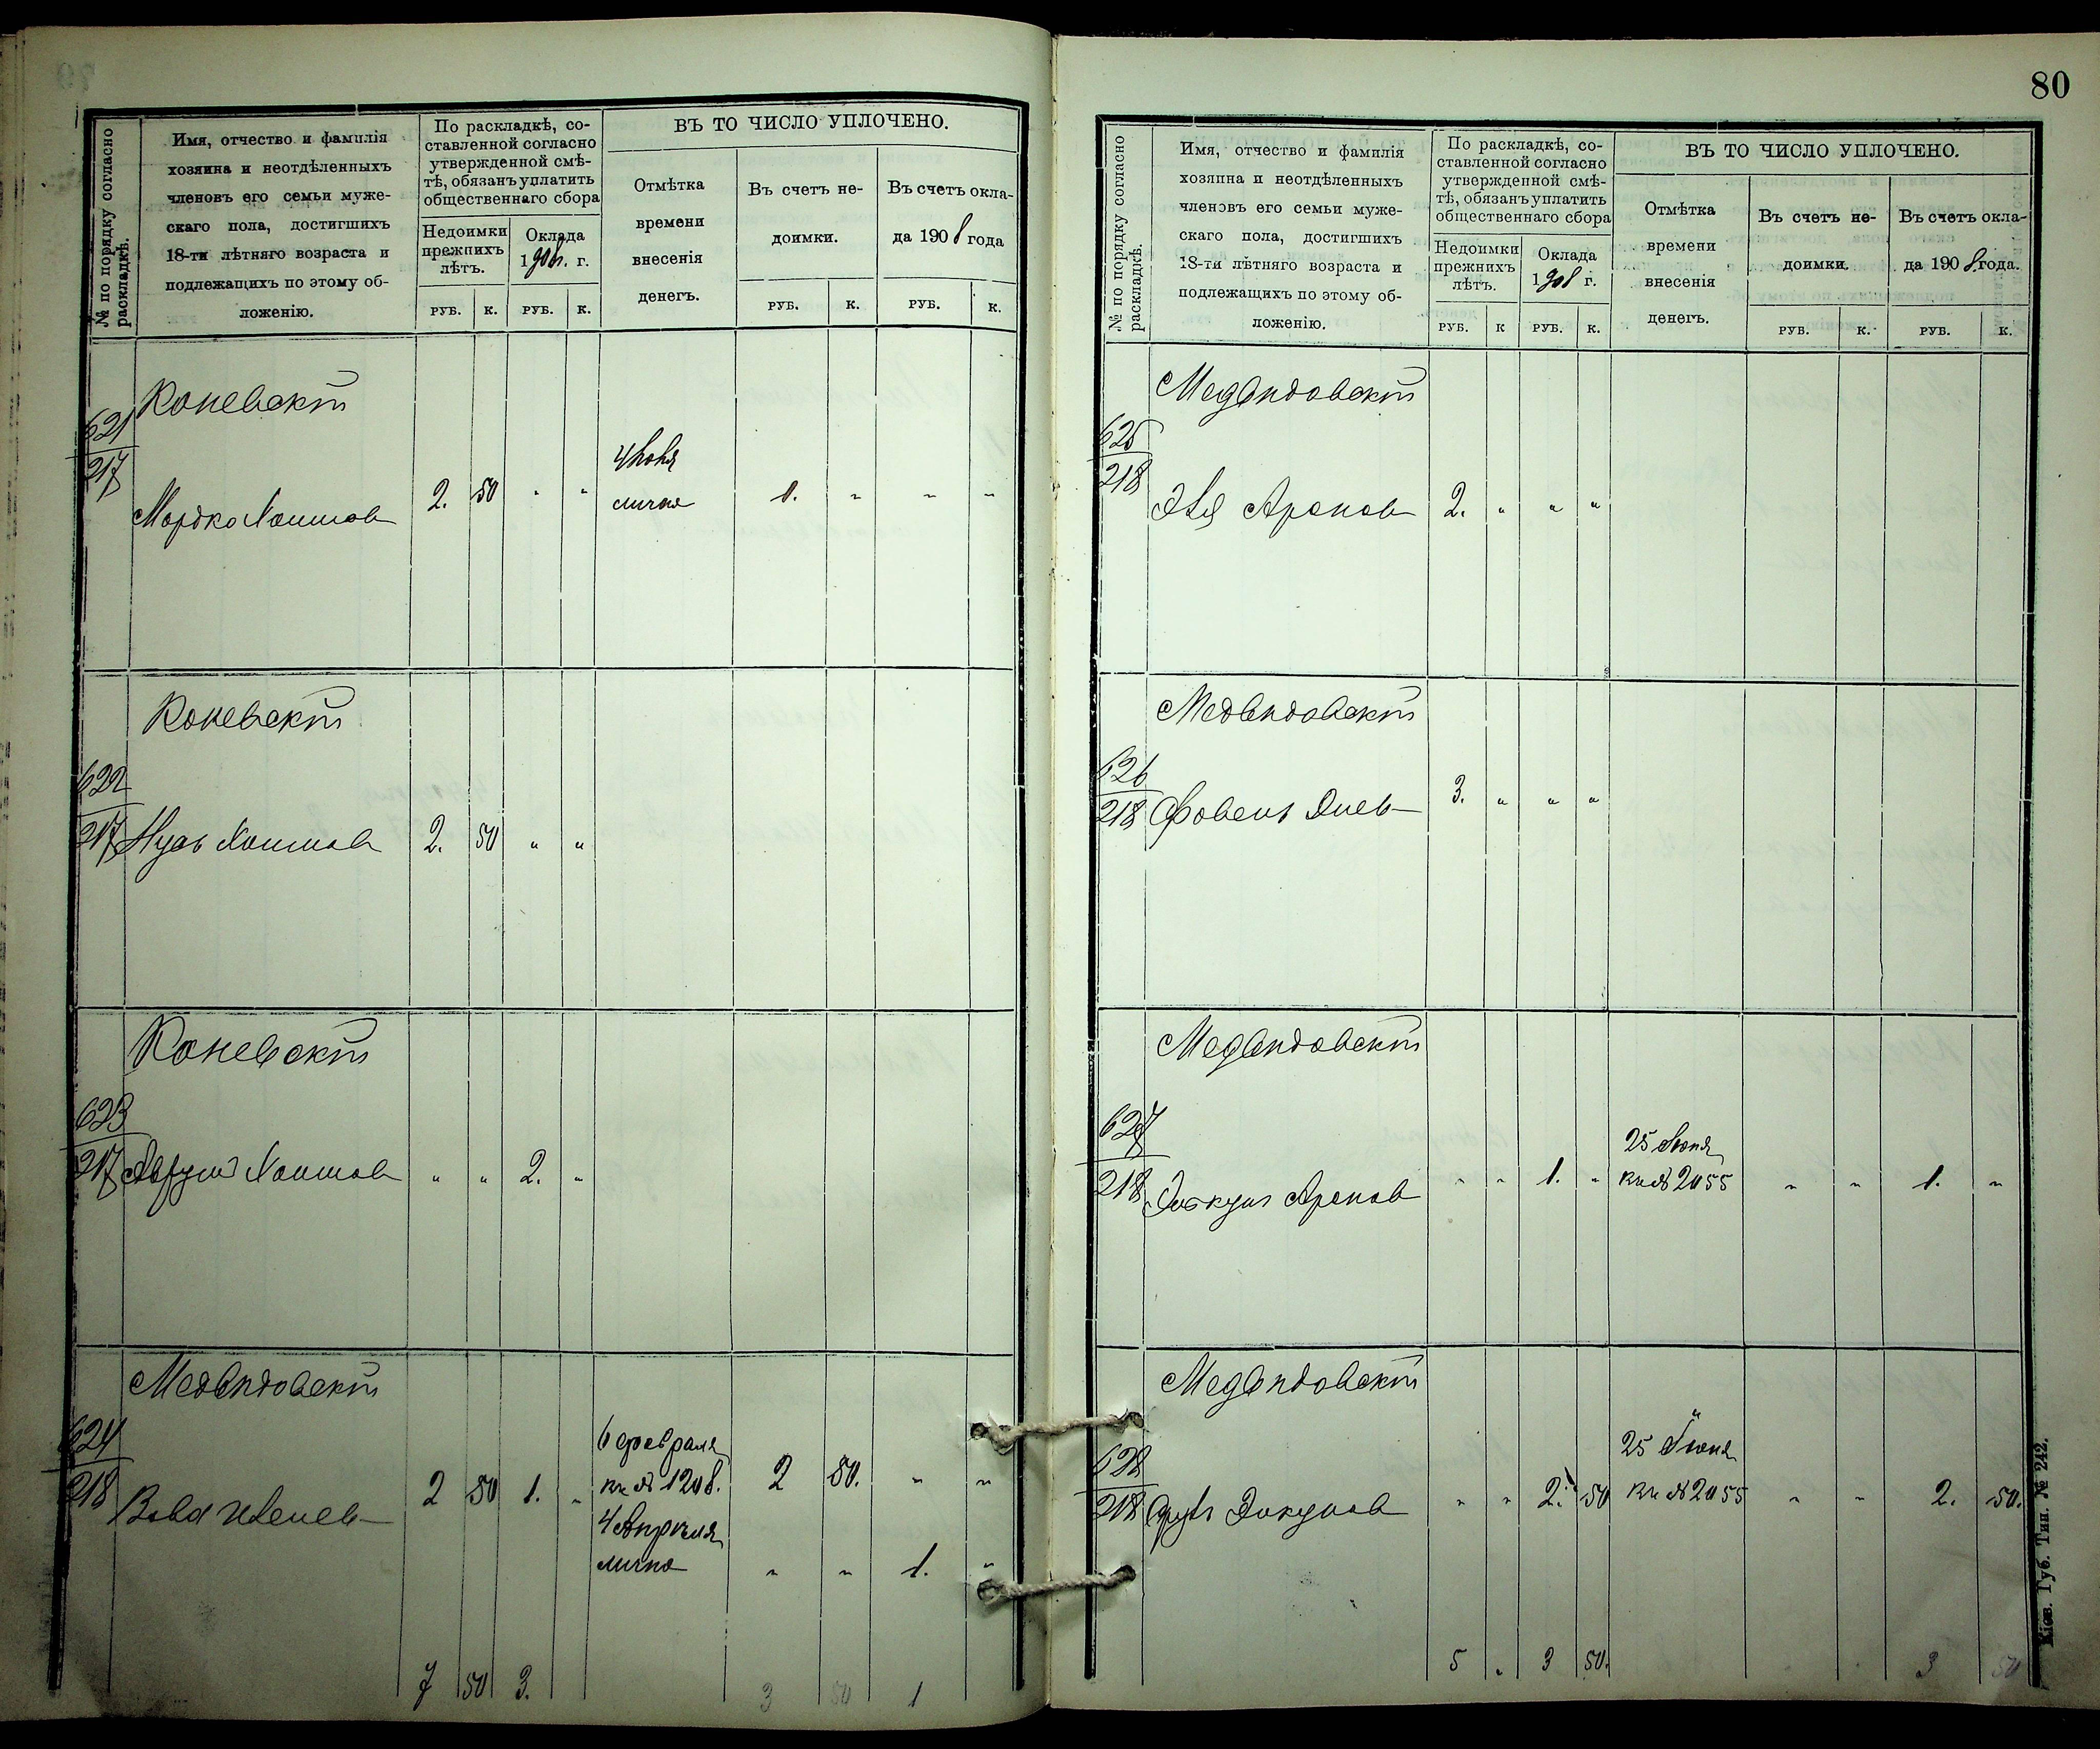 80
№ по порядку согласно раскладкѣ.
Имя, отчество и фамилія
хозяина и неотдѣленныхъ
членовъ его семьи муже-
скаго пола, достигшихъ
18-ти лѣтняго возраста и
подлежащихъ по этому об-
ложенію.
По раскладкѣ, со-
ставленной согласно
утвержденной смѣ-
тѣ, обязанъ уплатить
общественнаго сбора
Недоимки
прежнихъ
лѣтъ.
Оклада
1908 г.
ВЪ ТО ЧИСЛО УПЛОЧЕНО.
Отмѣтка
времени
внесенія
денегъ.
Въ счетъ не-
доимки.
Въ счетъ окла-
да 1908 года
РУБ. К. РУБ. К. РУБ. К. РУБ. К.
Каневскій
621
217
Мордко Хаимов 2. 50 " "
4 Іюня
лично 1. " " "
Каневскій
622
217
Хаимов 2. 50 " "
Каневскій
623
217
Хаимов " " 2. "
Медвѣдовскій
624
218
2 50 1. "
6 февраля
кв № 1208. 2 50. " "
4 Апрѣля
лично " " 1. "
7 50 3. 3 50 1
№ по порядку согласно раскладкѣ.
Имя, отчество и фамилія
хозяина и неотдѣленныхъ
членовъ его семьи муже-
скаго пола, достигшихъ
18-ти лѣтняго возраста и
подлежащихъ по этому об-
ложенію.
По раскладкѣ, со-
ставленной согласно
утвержденной смѣ-
тѣ, обязанъ уплатить
общественнаго сбора
Недоимки
прежнихъ
лѣтъ.
Оклада
1908 г.
ВЪ ТО ЧИСЛО УПЛОЧЕНО.
Отмѣтка
времени
внесенія
денегъ.
Въ счетъ не-
доимки.
Въ счетъ окла-
да 1908 года.
РУБ. К РУБ. К. РУБ. К. РУБ. К.
Медвѣдовскій
625
218
Аронов 2. " " "
Медвѣдовскій
626
218
3. " " "
Медвѣдовскій
627
218
Аронов " " 1. "
25 Іюня
кв № 2055 " " 1. "
Медвѣдовскій
628
218
" " 2. 50
25 Іюня
кв № 2055 " " 2. 50.
5 " 3 50. 3 50
Кіев. Губ. Тип. № 242.